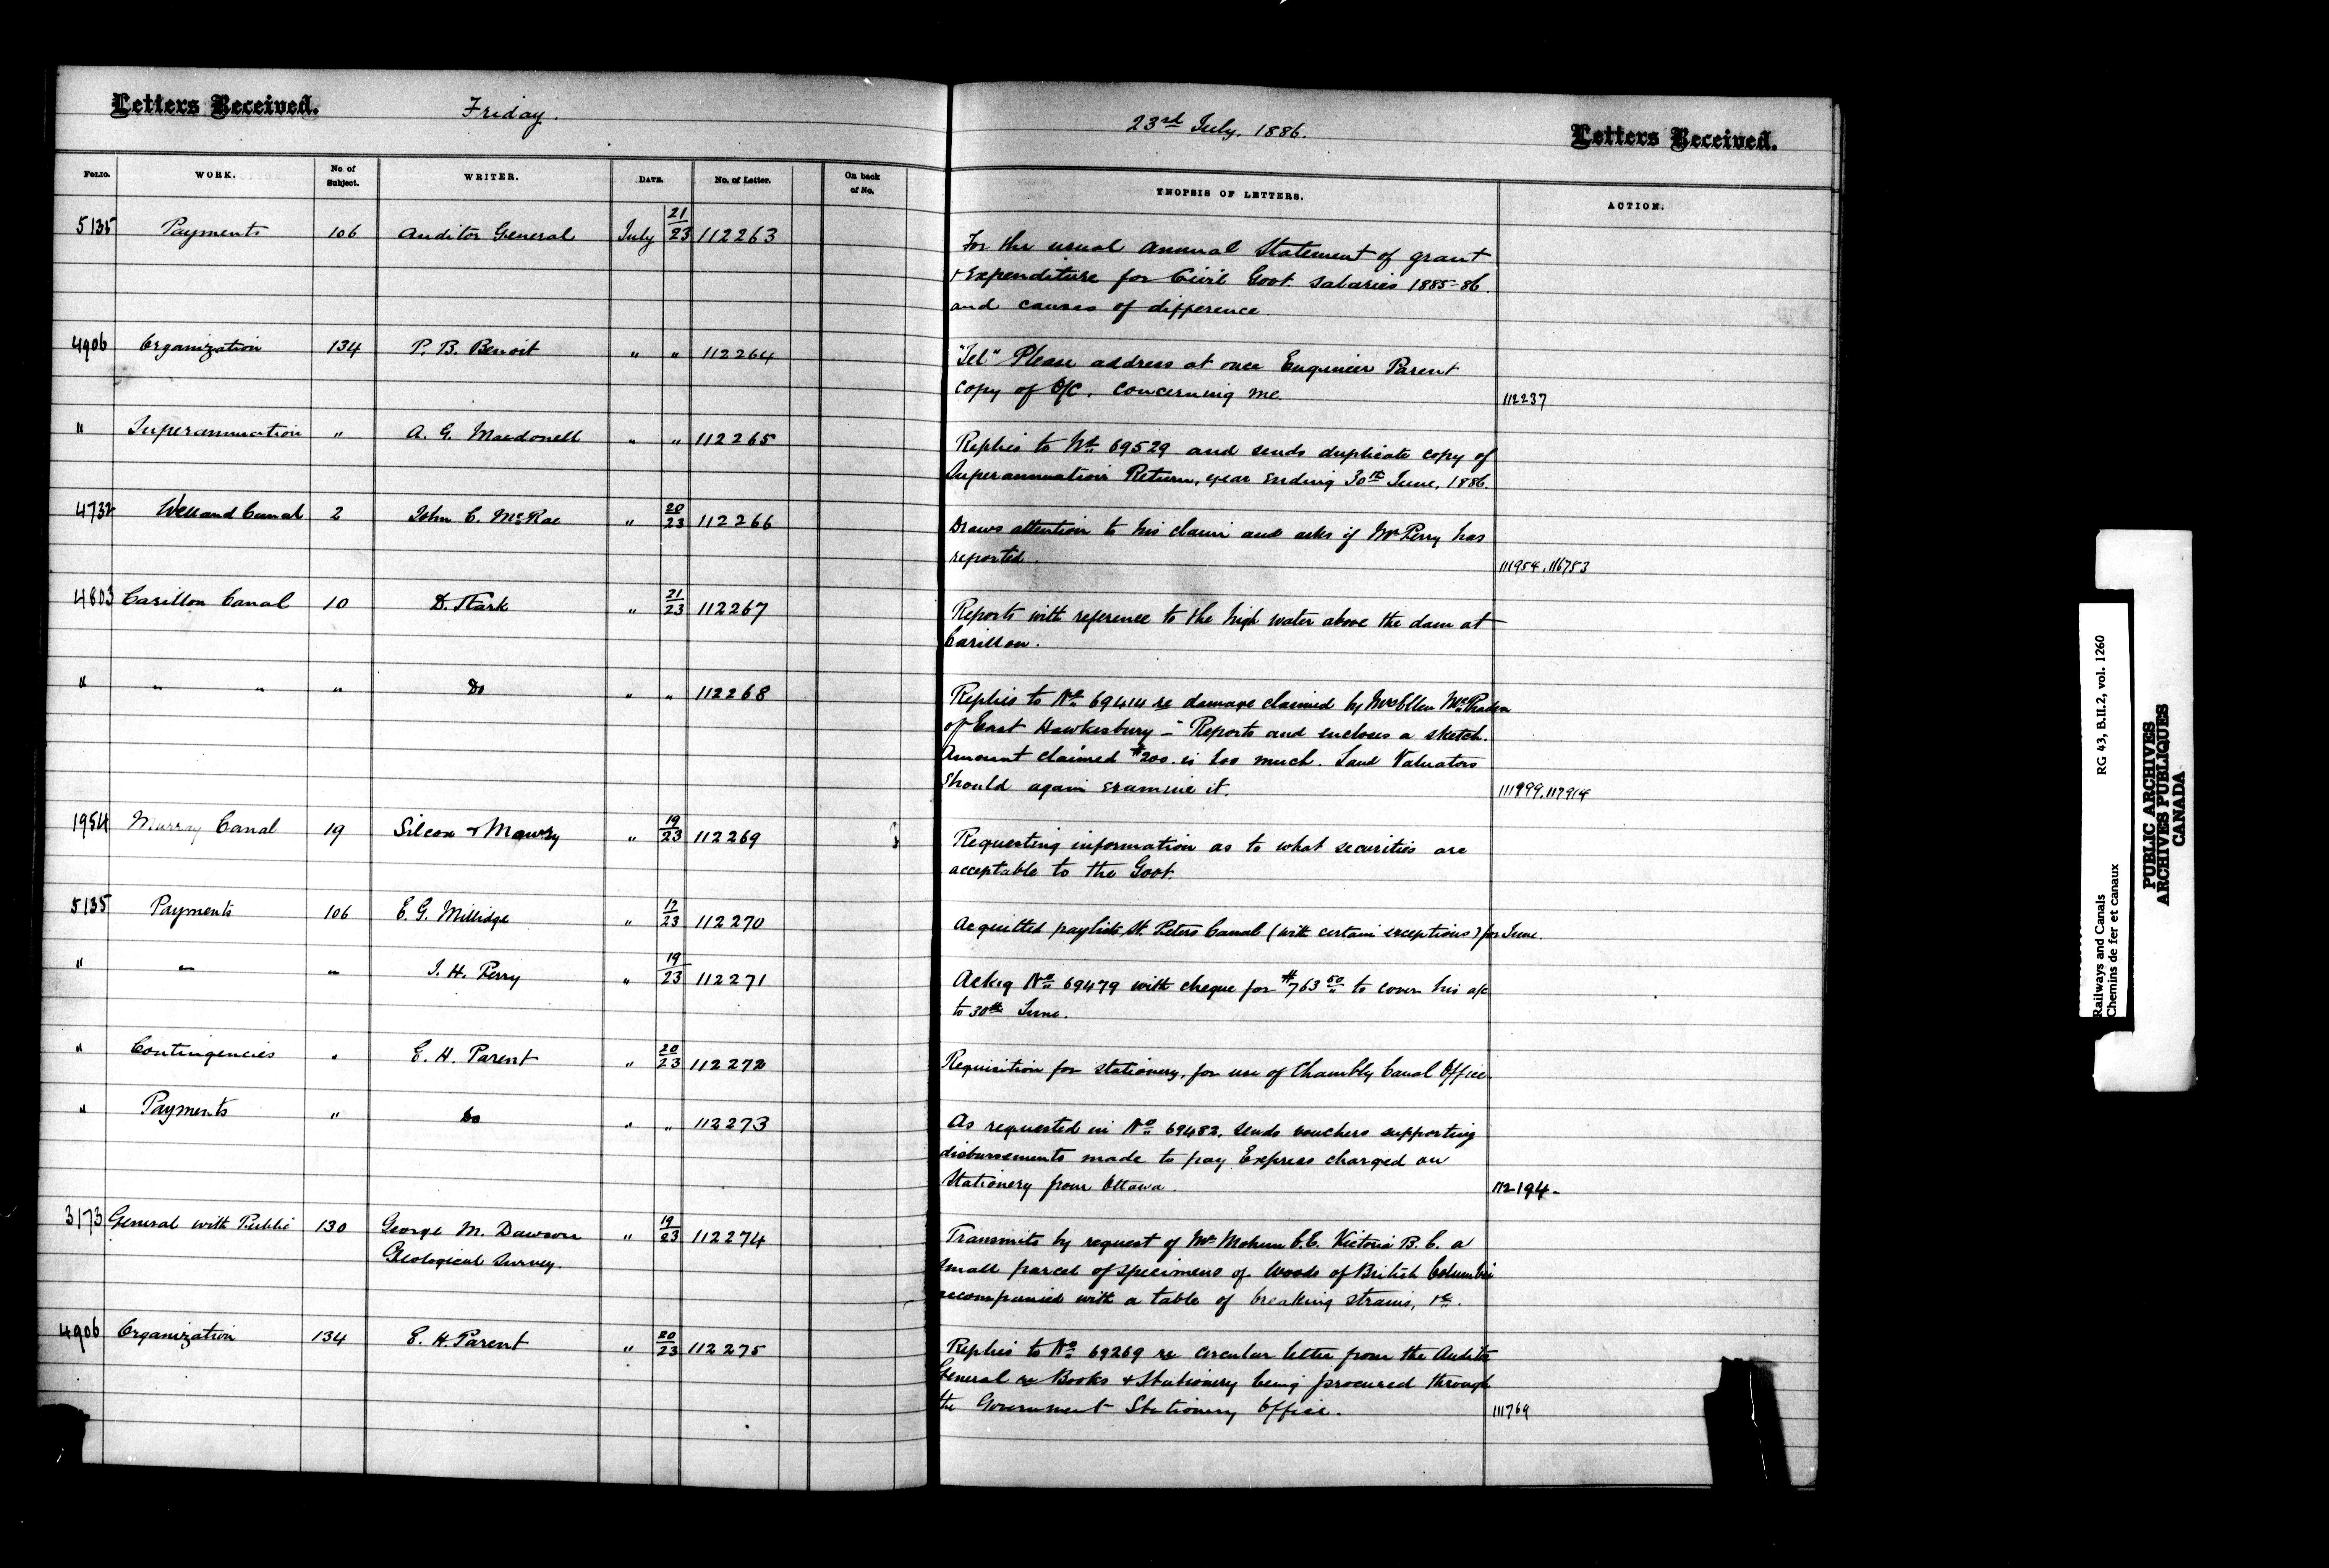 Letters Received.
Friday.
23rd July, 1886.
Letters Received.
FOLIO. WORK. No. of Subject. WRITER. DATE. No. of Letter. On back of No. YNOPSIS OF LETTERS. ACTION.
5135 Payments 106 Auditor General July 21/23 112263
For the usual annual Statement of grant
+ Expenditure for Civil Govt. Salaries 1885-86.
and causes of difference.
4906 Organization 134 P. B. Benoit " " 112264
"Tel" Please address at once Engineer Parent
copy of O/C. concerning me. 112237
" Superannuation " A. G. Macdonell " " 112265
Replies to No 69529 and sends duplicate copy of
Superannuation Return, year ending 30th June, 1886.
4732 Welland Canal 2 John C. McRae " 20/23 112266
Draws attention to his claim and asks if Mr Perry has
reported. 111954. 116753
4803 Carillon Canal 10 D. Stark " 21/23 112267
Reports with reference to the high water above the dam at
Carillon.
" " " " Do " " 112268
Replies to No 69414 re damage claimed by Mrs Ellen
of East Hawkesbury - Reports and encloses a sketch.
Amount claimed $200. is too much. Land Valuators
should again examine it. 111999. 117914
1954 Murray Canal 19 Silcox + Mowry " 19/23 112269
Requesting information as to what securities are
acceptable to the Govt.
5135 Payments 106 E. G. Millidge " 17/23 112270
Acquitted paylists St. Peters Canal (with certain exceptions) for June.
" " " J. H. Perry " 19/23 112271
Ackg No 69479 with cheque for $763 50 to cover his a/c
to 30th June.
" Contingencies " E. H. Parent " 20/23 112272
Requisition for stationery, for use of Chambly Canal Office.
" Payments " Do " " 112273
As requested in No 69482, sends vouchers supporting
disbursements made to pay Express charged on
Stationery from Ottawa. 112194-
3173 General with Public 130 George M. Dawson " 19/23 112274
Geological Survey.
Transmits by request of Mr Mohun C.E. Victoria B.C. a
small parcel of specimens of Woods of British Columbia
accompanied with a table of breaking strains, &c.
4906 Organization 134 E. H. Parent " 20/23 112275
Replies to No 69269 re circular letter from the Auditor
General re Books + Stationery being procured through
the Government Stationery Office. 111769
Railways and Canals RG 43, B.II.2, vol. 1260
Chemins de fer et canaux
PUBLIC ARCHIVES
ARCHIVES PUBLIQUES
CANADA